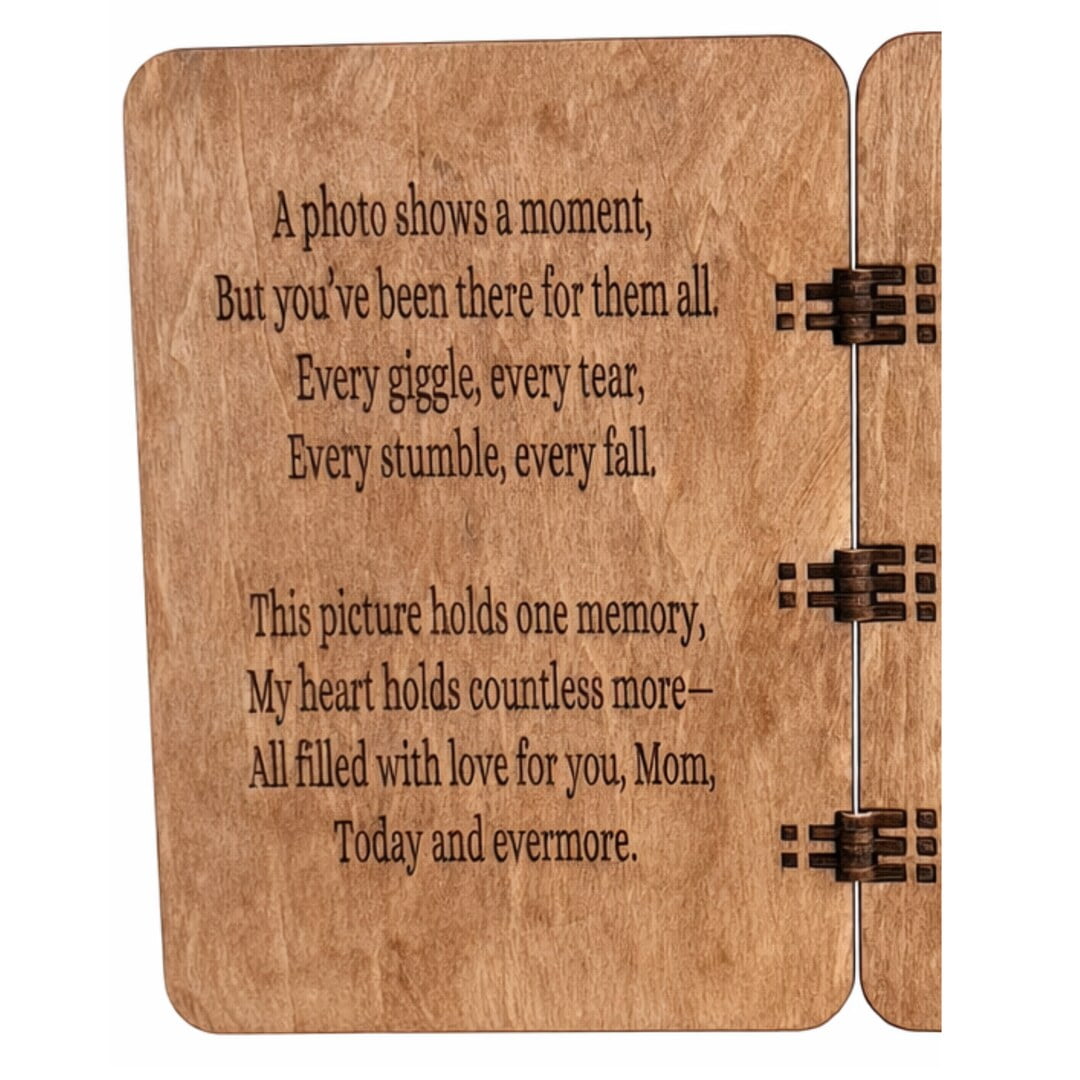 A photo shows a moment,
But you've been there for them all.
Every giggle, every tear,
Every stumble, every fall.
This picture holds one memory,
My heart holds countless more—
All filled with love for you, Mom,
Today and evermore.